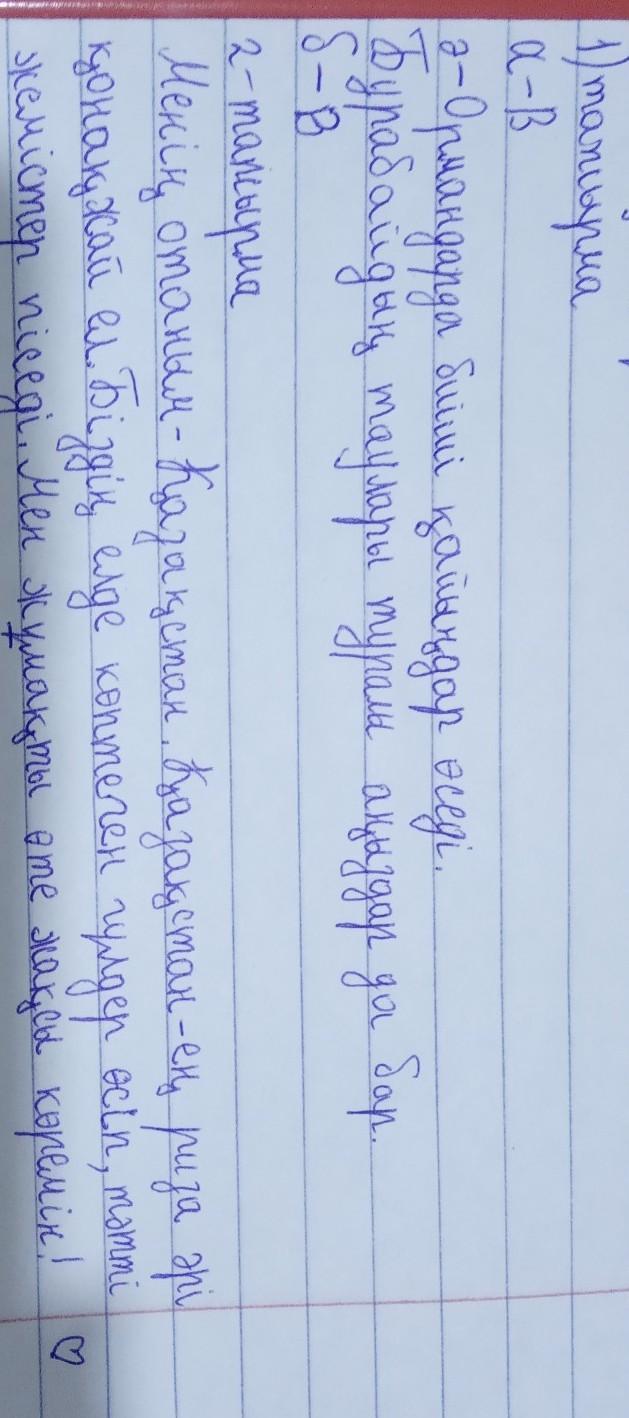 1) тапсырма
а-В
ә-Ормандарда биікі қайыңдар өседі.
Бурабайдың таулары туралы аңыздар да бар.
б-В
2-тапсырма
Менің отаным-Қазақстан. Қазақстан-ең риза әрі
қонақжай ел. Біздің елде көптеген гүлдер өсіп, тәтті
жемістер піседі. Мен жұмақты өте жақсы көремін!